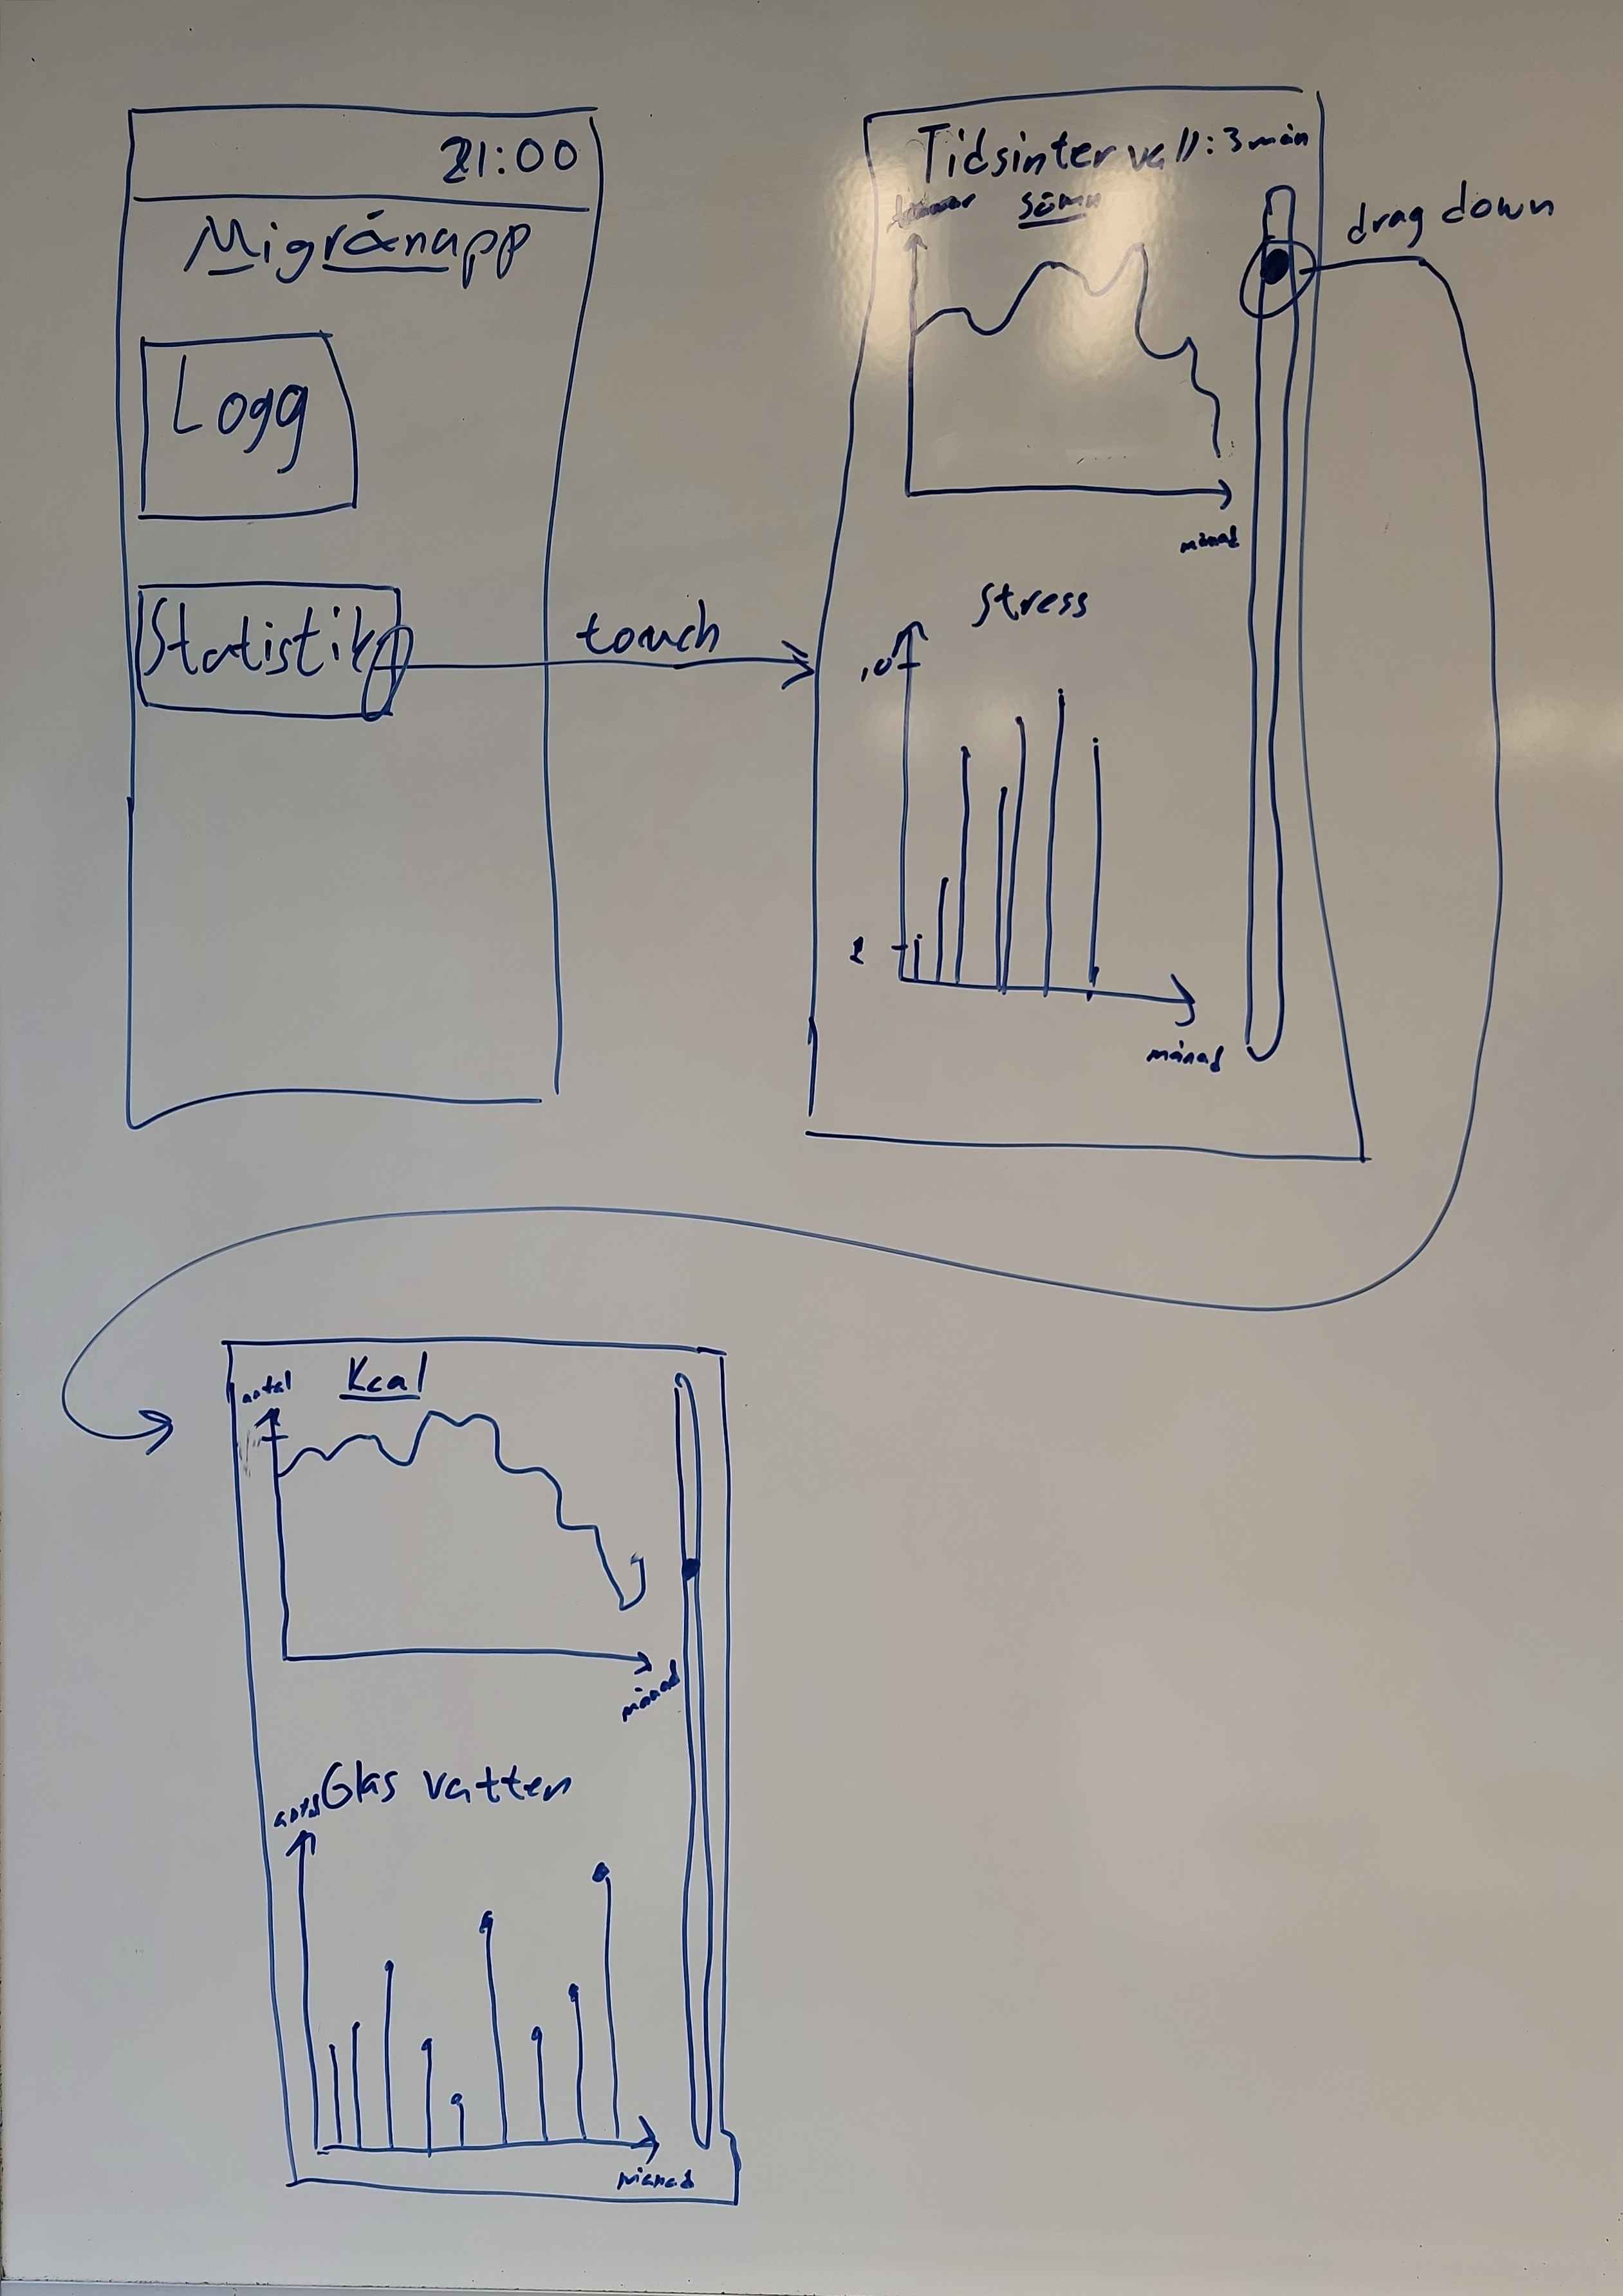 21:00
Migränapp
Logg
Statistik
touch
Tidsintervall: 3 mån
timmar sömn
månad
drag down
stress
10
1
månad
antal Kcal
månad
antal Glas vatten
månad